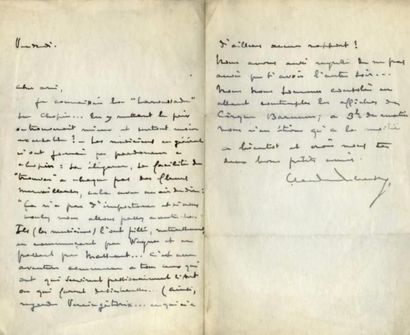 Vendredi.
Cher ami,
Je connaissais les "
sur Chopin... En y mettant le prix
on trouverait mieux et surtout moins
! — Les musiciens en général
n'ont jamais pu pardonner à
Chopin : son élégance, sa facilité de
"trouver" à chaque pas des fleurs
merveilleuses, cela avec un air de dire :
"Ça n'a pas d'importance et si vous
voulez nous allons parler d'autre
Ils (les musiciens) l'ont pillé,
en commençant par Wagner et en
passant par ... c'est une
aventure commune à tous ceux
qui ont servi passionnément l'art
ou qui l'ont
regardez Vercingétorix...
d'ailleurs aucun rapport !
Nous avons aussi regretté de ne pas
avoir pu t'avoir l'autre soir...
Nous nous sommes consolés en
allant contempler les affiches du
Cirque Barnum, à 9h. du matin
nous n'en étions qu'à la moitié
à bientôt et crois nous tes
deux bons petits amis.
Claude Debussy